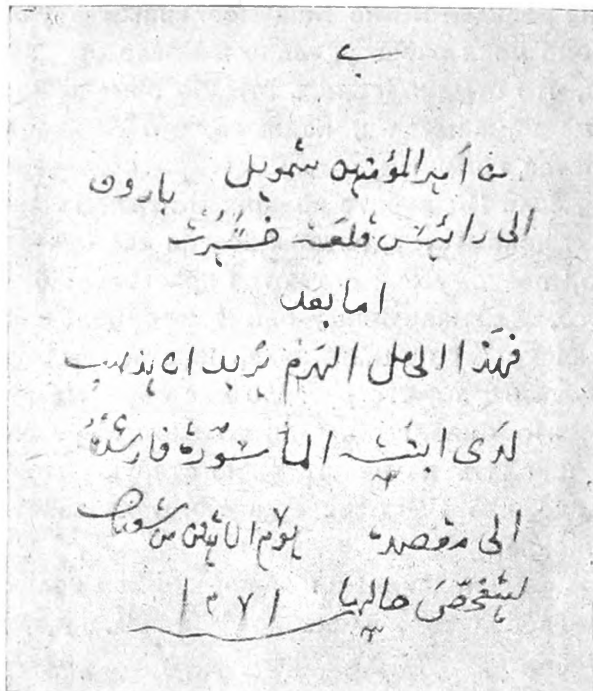 من أمير المؤمنين شمويل بارون
الى رائيس قلعة
اما بعد
فهَذا الهَرِمُ يُريد ان يذهب
لَدَى ابنته المأسُورَة
الى مقصده يوم الاثنين من شوال
ليتفحّصَ حالها ١٢٧١